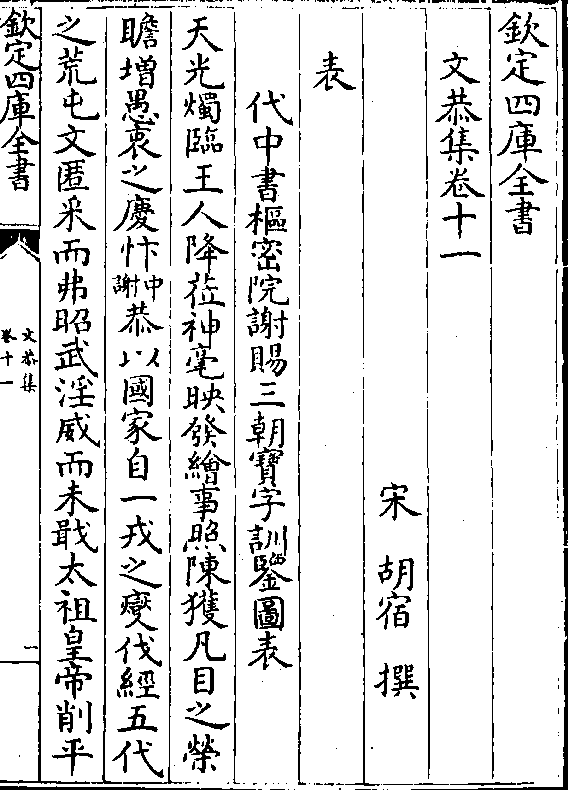 欽定四庫全書
文恭集卷十一
宋 胡宿 撰
表
代中書樞密院謝賜三朝寶字訓鑒圖表
天光燭臨王人降莅神毫映發繪事照陳獲凡目之榮
瞻增愚衷之慶忭中謝恭以國家自一戎之燮伐經五代
之荒屯文匿采而弗昭武淫威而未戢太祖皇帝削平
欽定四庫全書
文恭集
卷十一
一